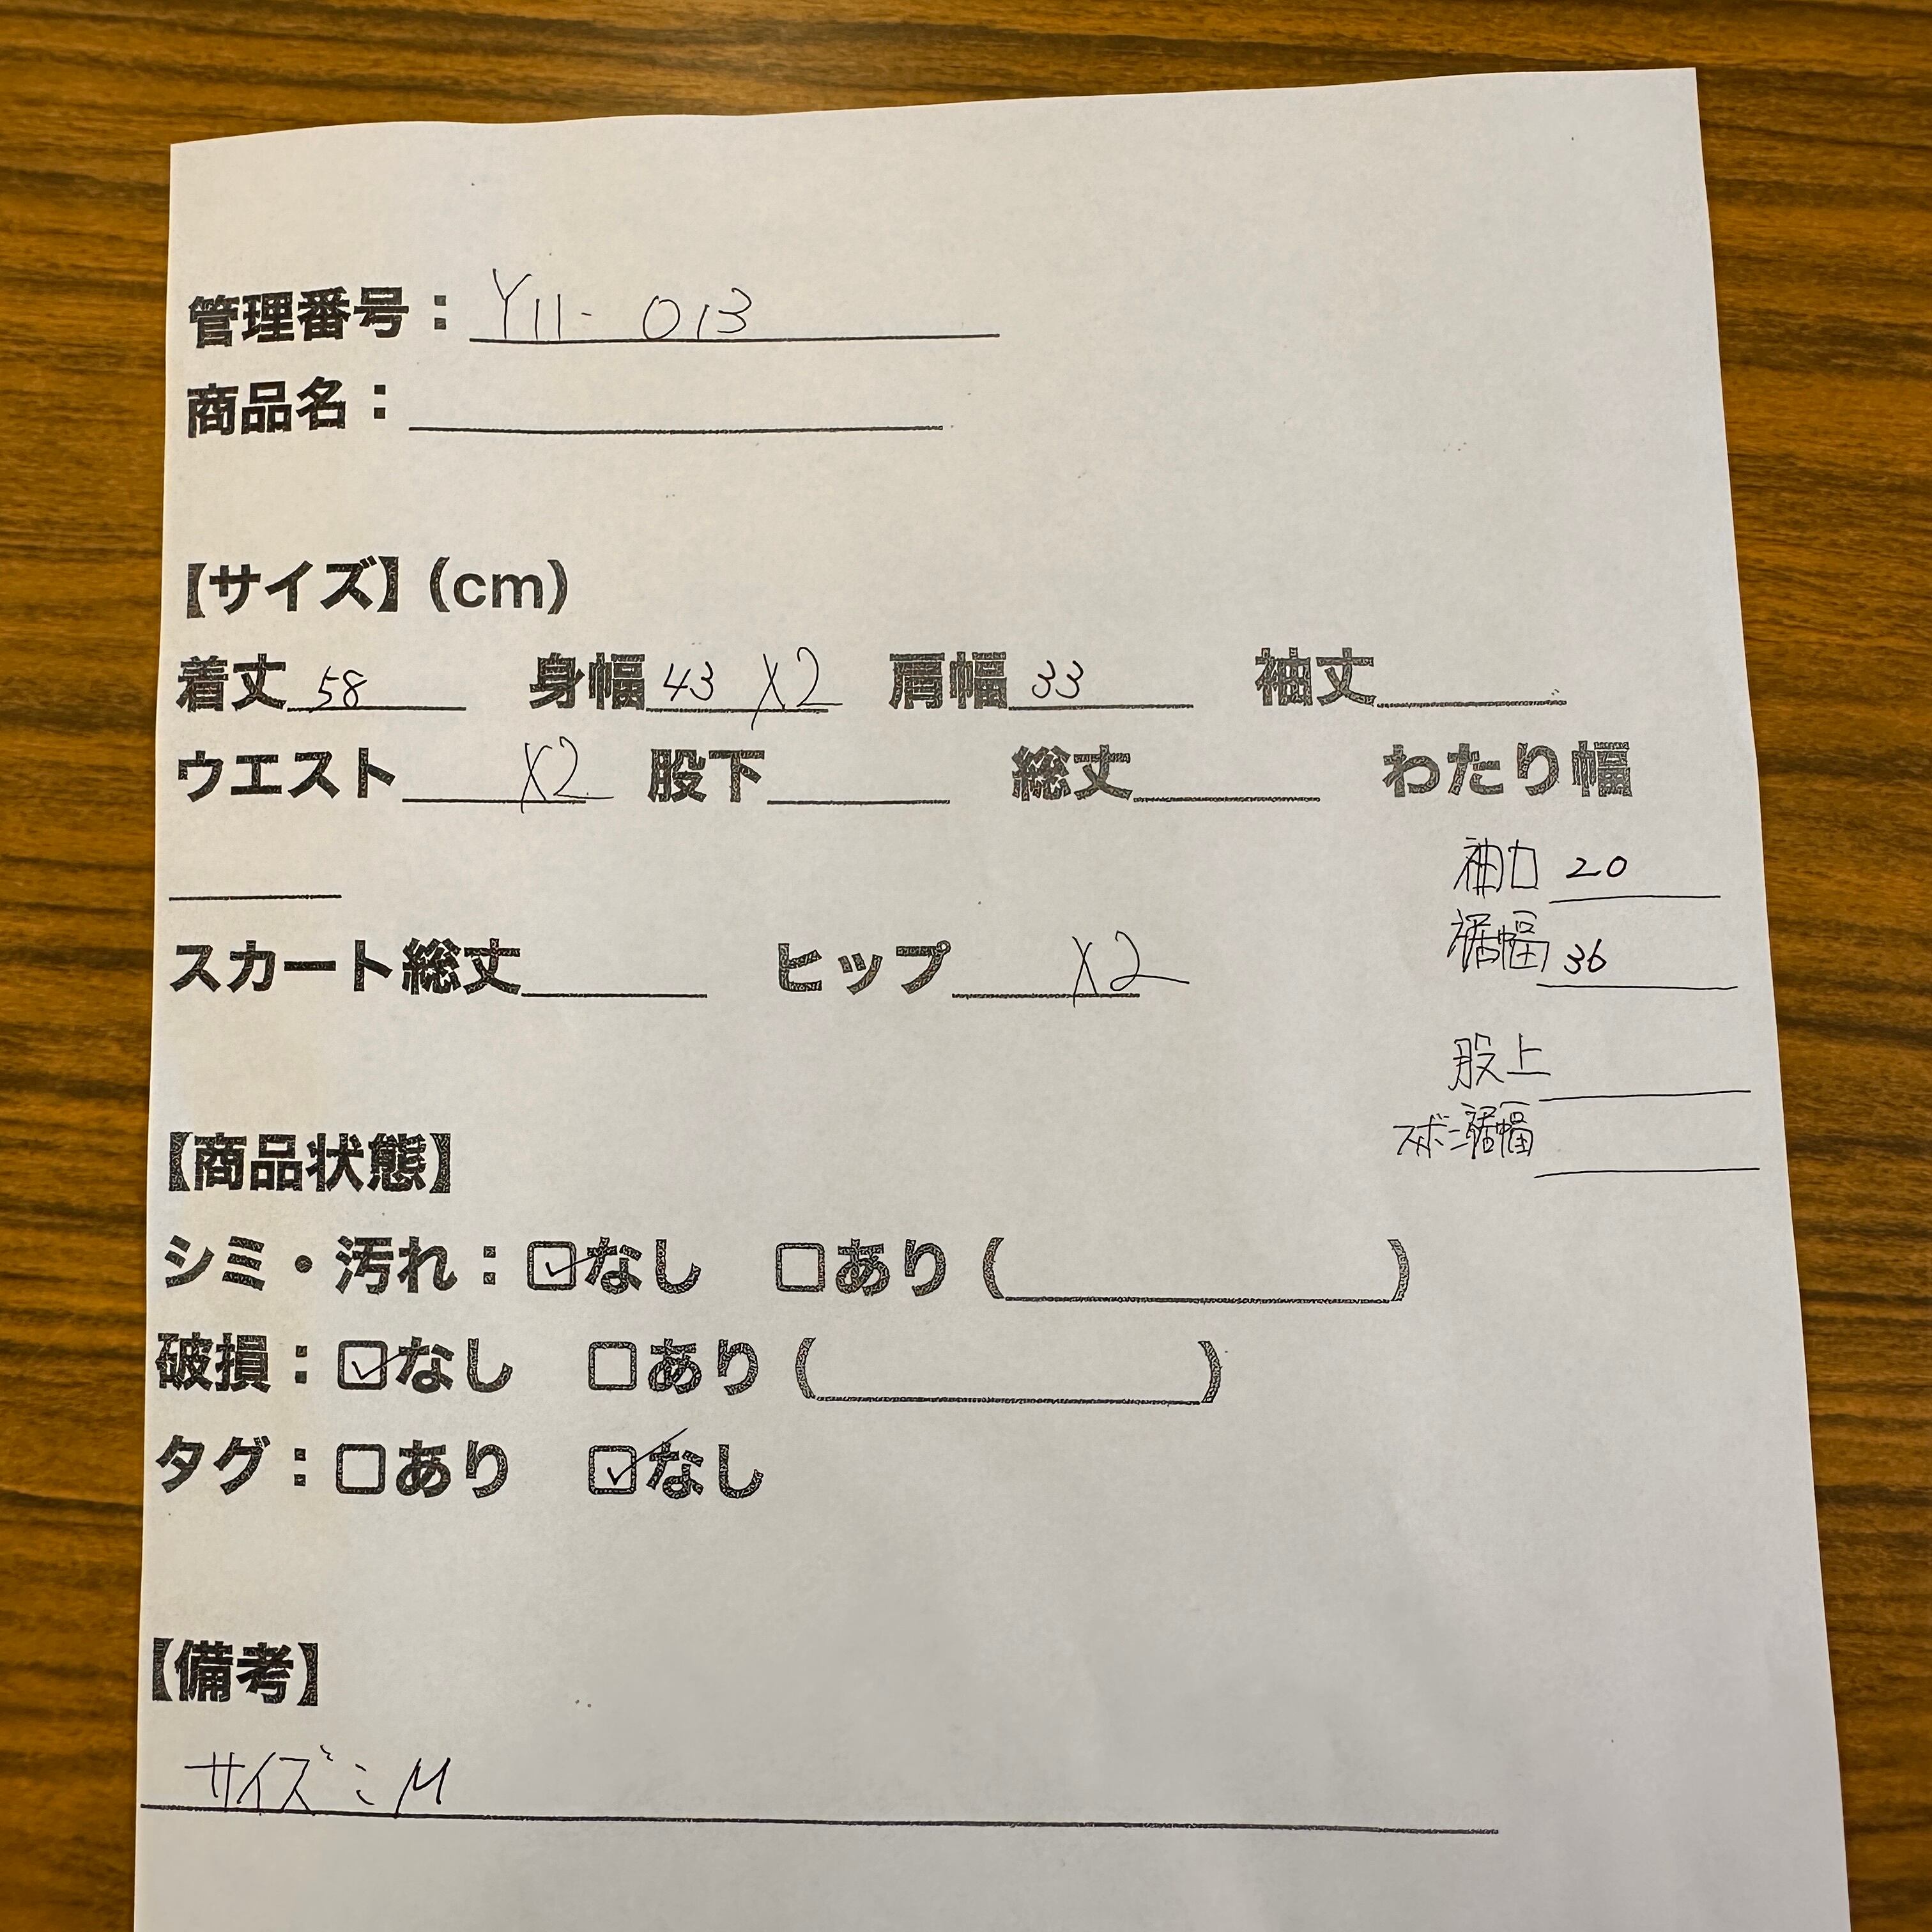 管理番号：Y11- 013
商品名：
【サイズ】(cm)
着丈 58 身幅 43 X2 肩幅 33 袖丈
ウエスト X2 股下 総丈 わたり幅
袖口 20
裾幅 36
スカート総丈 ヒップ X2
股上
ズボン裾幅
【商品状態】
シミ・汚れ：☑なし □あり ( )
破損：☑なし □あり ( )
タグ：□あり ☑なし
【備考】
サイズ：M